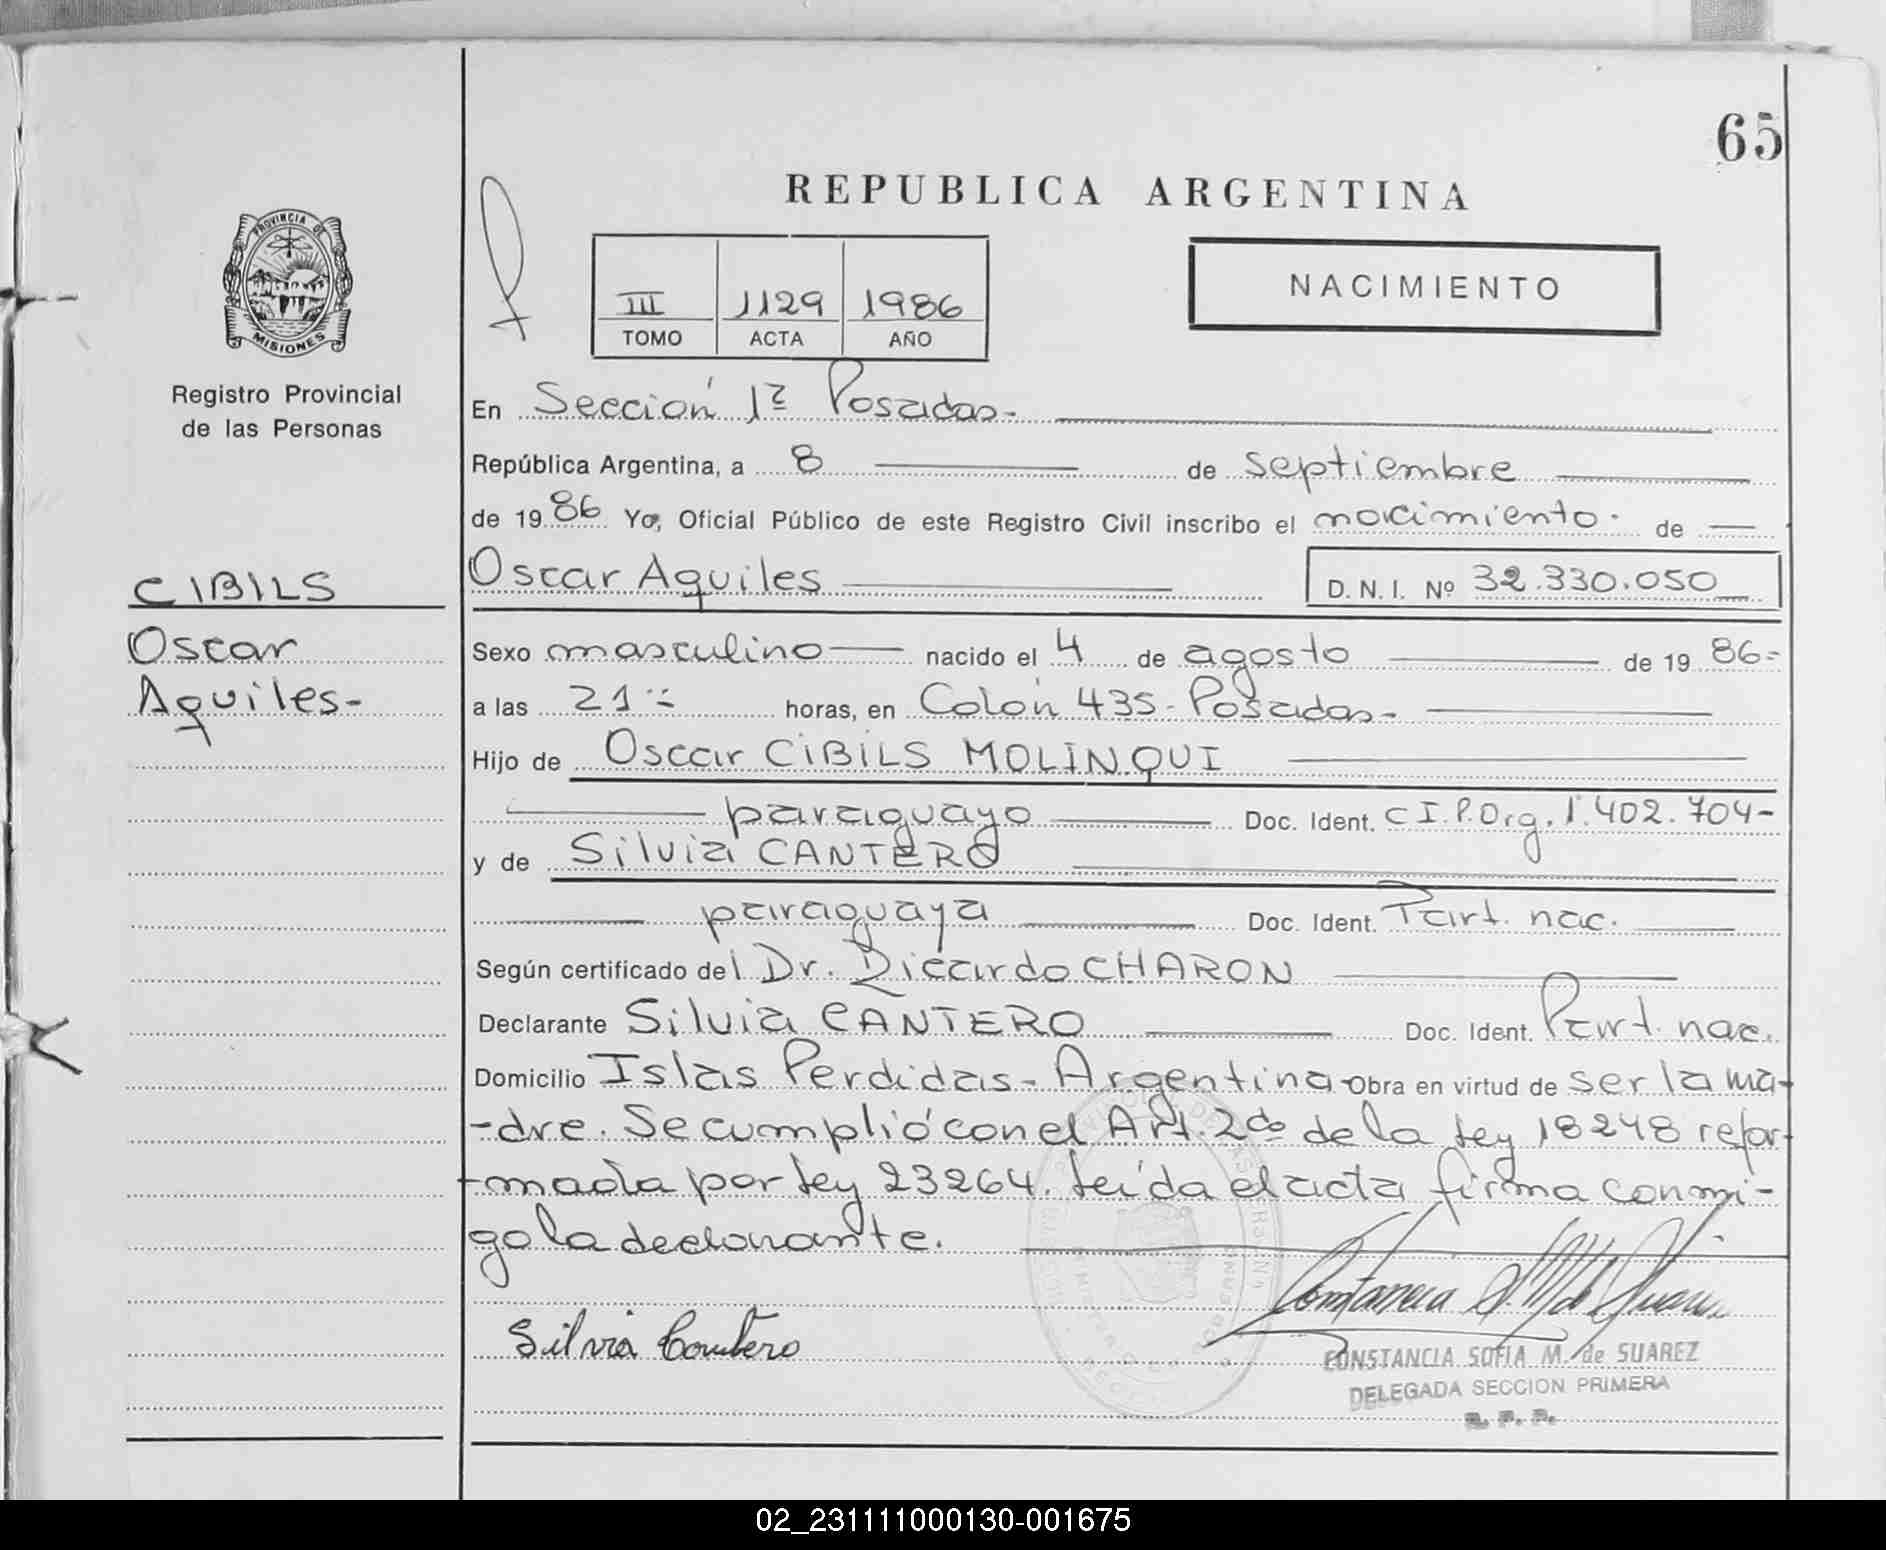 65
REPUBLICA ARGENTINA
PROVINCIA DE
MISIONES
Registro Provincial
de las Personas
III 1129 1986
TOMO ACTA AÑO
NACIMIENTO
En Sección 1ª Posadas-
República Argentina, a 8 de septiembre
de 1986 Yo, Oficial Público de este Registro Civil inscribo el nacimiento. de
Oscar Aquiles D. N. I. Nº 32.330.050
CIBILS
Oscar
Aquiles-
Sexo masculino nacido el 4 de agosto de 1986-
a las 21 horas, en Colón 435- Posadas-
Hijo de Oscar CIBILS MOLINQUI
paraguayo Doc. Ident. C I.P.Org. 1.402.704-
y de Silvia CANTERO
paraguaya Doc. Ident. Part. nac.
Según certificado del Dr. Ricardo CHARON
Declarante Silvia CANTERO Doc. Ident. Part. nac.
Domicilio Islas Perdidas- Argentina Obra en virtud de ser la ma-
-dre. Se cumplió con el Art. 2do de la ley 18248 refor-
-mada por ley 23264. Leída el acta firma conmi-
go la declarante.
Silvia Cantero
CONSTANCIA SOFIA M. de SUAREZ
DELEGADA SECCION PRIMERA
R. P. P.
02_231111000130-001675